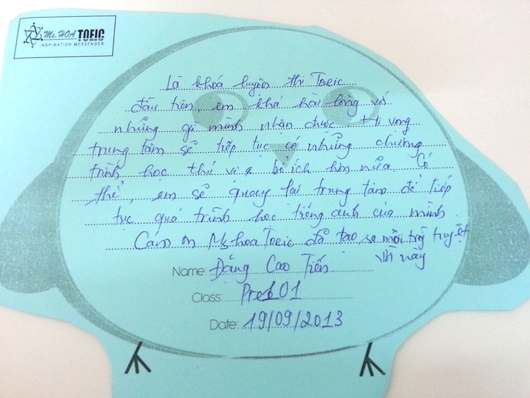 Ms. HOA TOEIC
ASPIRATION MESSENGER
Là khoá luyện thi Toeic
đầu tiên, em khá hài lòng với
những gì mình nhận được. Hi vọng
trung tâm sẽ tiếp tục có những chương
trình học thú vị & bổ ích hơn nữa. Có
thể, em sẽ quay lại trung tâm để tiếp
tục quá trình học tiếng anh của mình
Cảm ơn Ms hoa Toeic đã tạo ra môi trg tuyệt
vời này
Name: Đặng Cao Tiến
Class: Pre 01
Date: 19/09/2013